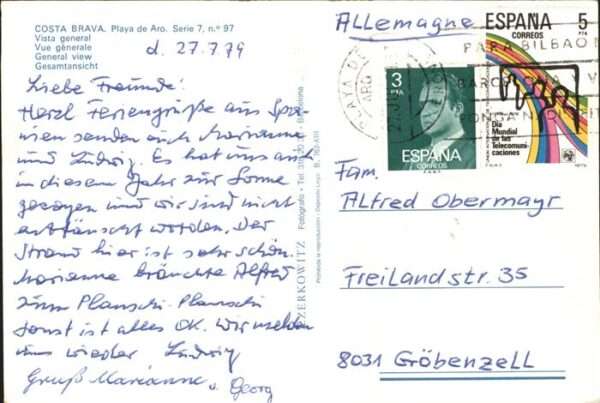 COSTA BRAVA. Playa de Aro. Serie 7, n.º 97
Vista general
Vue génerale
General view
Gesamtansicht
d. 27.7.79
Liebe Freunde!
Herzl Feriengrüße aus Spa-
nien senden euch Marianne
und Ludwig. Es hat uns au
in diesem Jahr zur Sonne
gezogen und wir sind nicht
enttäuscht worden. Der
Strand hier ist sehr schön.
Marianne bräuchte Alfred
zum Planschi-Planschi
sonst ist alles OK. Wir melden
uns wieder Ludwig
Gruß Marianne u. Georg
ZERKOWITZ Fotógrafo
Barcelona
Allemagne
ESPAÑA 5
CORREOS PTA
3
PTA
ESPAÑA
CORREOS
PLAYA D
ARO
PAPA BILBAO
BARCELONA
Dia
Mundial
de las
Telecomuni-
caciones
Fam.
Alfred Obermayr
Freilandstr. 35
8031 Gröbenzell